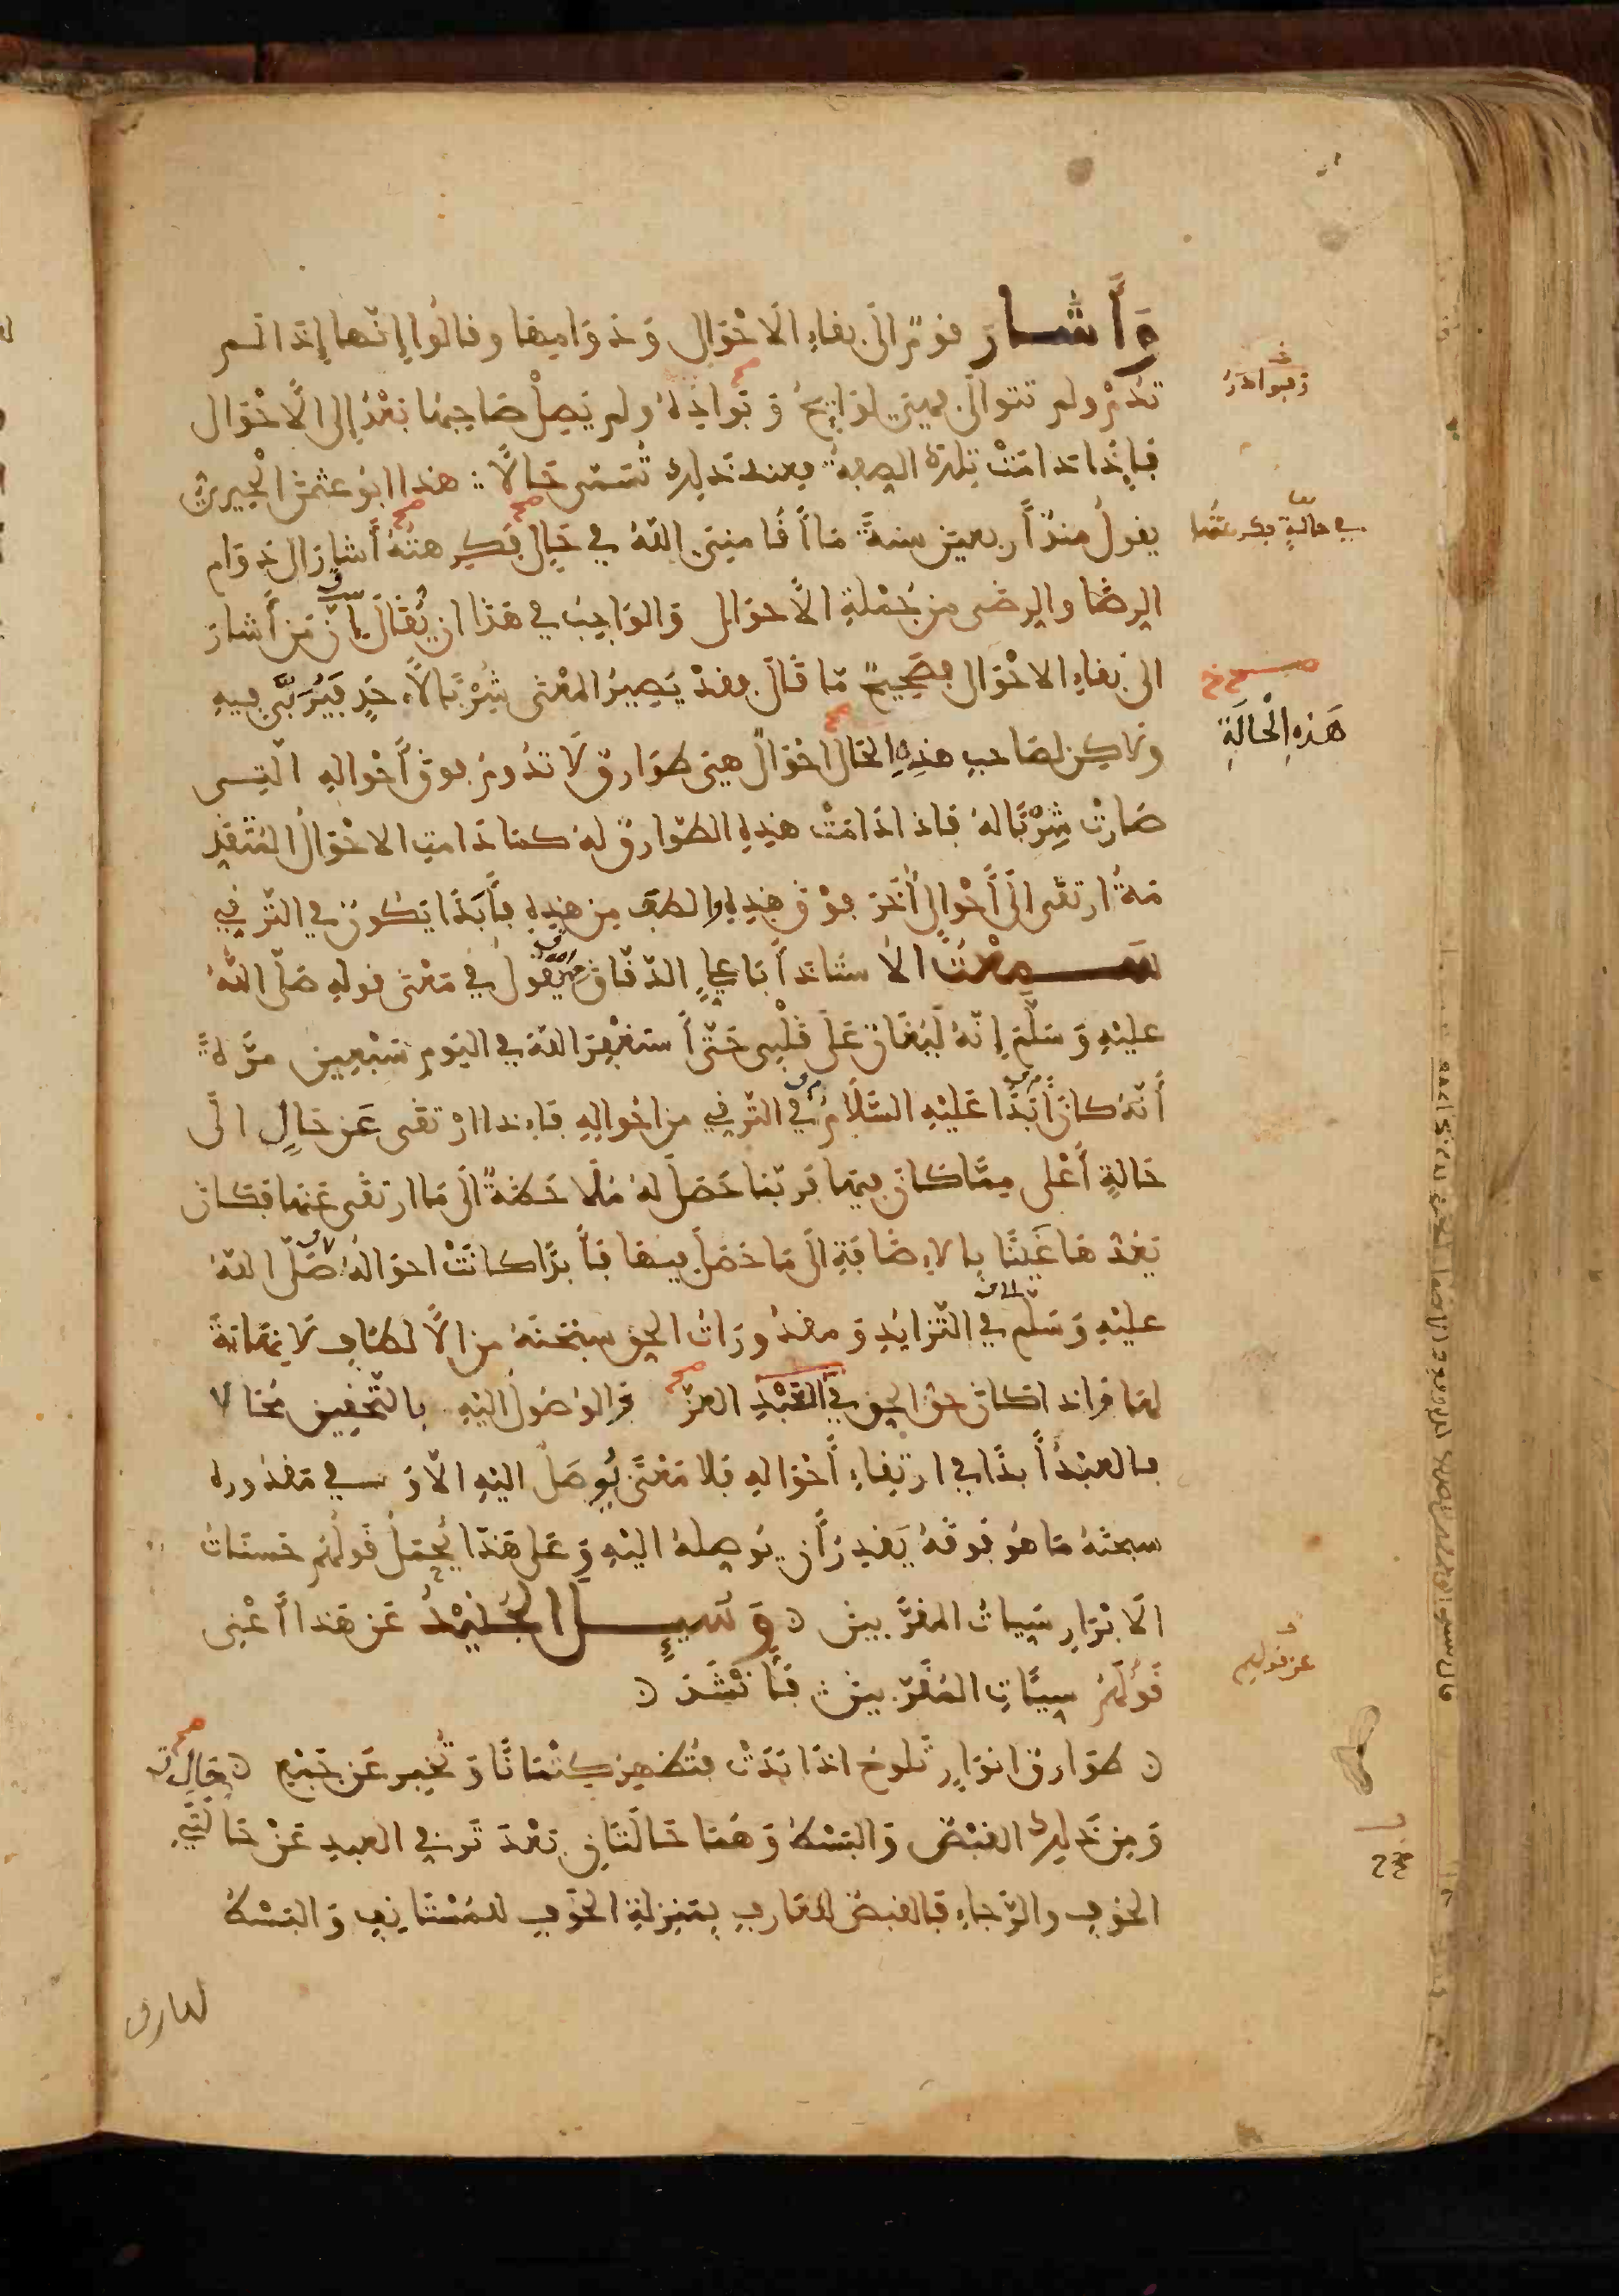 وَأَشَارَ قومٌ الَى بقاءِ الَاحْوَالِ وَدَوَامِهَا وقالُوا إنّها إذَا لم
تَدُمْ ولم تتوالَى فهيَ لَوَايِحُ وَبَوَادِهُ ولم يَصِلْ صَاحِبُهَا بَعْدُ إلى الَاحْوَال
فإذا دَامَتْ تِلكَ الصِفةُ فعند ذَلِكَ تُسَمَّى حَالًا هذا ابُو عثمٰن الْحِيرِيُّ
يقولُ منذُ أربعينَ سنةً مَا أقَامَنِيَ اللّهُ في حَالٍ فَكَرِهتُهُ أَشَارَ الى دَوَام
الرِضَا والرِضَى من جُمْلَةِ الَاحوَالِ وَالوَاجِبُ في هَذَا ان يُقَالَ إنَّ مَن أَشارَ
الىَ بقاءِ الاحْوَالِ فصَحِيحٌ مَا قَالَ فقدْ يَصِيرُ المَعْنَى شِرْبًا لأَحَدٍ فَيُرَبَّى فيهِ
ولاكِن لصَاحبِ هذِهِ الحَالِ احْوَالٌ هيَ طَوَارِقُ لَا تَدُومُ فوقَ أَحْوالِهِ الّتِى
صَارَتْ شِرْبًا لهُ فإذا دَامَتْ هذِهِ الطّوارِقُ لهُ كمَا دَامتِ الاحْوَالُ المُتَقَدِّ
مَةُ ارتقَى الَى أَحْوالٍ أُخَرَ فوْقَ هذِهِ والطفَ مِن هذِهِ فأَبَدًا يَكُونُ في التَّرَقِّي
سَمِعْتُ الأستَاذَ أَبَا عليٍّ الدّقّاقَ يقولُ في مَعْنَى قولِهِ صَلَّى اللّهُ
عليْهِ وَسَلَّمَ إنَّهُ لَيُغَانُ عَلَى قَلْبِى حَتَّى أَستَغْفِرَ اللّهَ في اليَومِ سَبْعِينَ مَرَّةً
أَنَّهُ كانَ أَبَدًا عَلَيْهِ السَّلَامُ في التّرَقِّي من احْوالِهِ فإذا ارْتَقَى عَن حَالٍ الَى
حَالةٍ أَعْلى مِمَّا كانَ فيهَا فَربّمَا حَصَلَ لهُ مُلَاحَظَةٌ الَى مَا ارتقَى عَنهَا فكَانَ
يَعُدُّهَا غَيْنًا بالاِضَافَةِ الَى مَا حَصَلَ فيهَا فأَبَدًا كانَتْ احوَالُهُ صَلَّى اللّهُ
عليْهِ وَسَلَّم في التّزايُدِ وَمقدُورَاتُ الحقِ سبْحٰنَهُ من الَالطافِ لَا نِهَايَةَ
لهَا فإذا كانَ حقُّ الحقِ في العَبْدِ العِزُّ وَالوُصُولُ اليْهِ بالتّحْقِيقِ مُحَالًا
فالعبْدُ أَبدًا في ارتِقاءِ أَحْوَالِهِ فلا مَعْنًى يُوصَلُ اليْهِ الّا وَ في مَقدُورِهِ
سبحٰنَهُ مَا هُوَ فوقَهُ يَقدِرُ أَن يُوصِلَهُ اليْهِ وَعَلَى هَذَا يُحمَلُ قَولُهُم حَسنَاتُ
الَابْرَارِ سَيِياتُ المقرّبينَ وَسُيِلَ الجُنَيْدُ عَن هَذا أَعْنِى
قَوْلَهُمْ سيِّيَاتِ المُقَرّبينَ فأَنْشَدَ
طَوَارقُ انوارٍ تَلُوحُ اذَا بَدَتْ فتُظهِرُ كِتْمَانًا وَتُخبِر عَن جَمْعِ
وَمِن ذَلِكَ القبْضُ وَالبَسْطُ وَهُمَا حَالَتَانِ بَعْدَ تَرَقّي العبدِ عَنْ حَالَتَيِ
الخَوفِ والرَّجاءِ فَالقبضُ للعَارِفِ بمَنزِلَةِ الخَوفِ للمُسْتَانِفِ وَالبَسْطُ
للعارف
وبوادرُ
في حالةٍ فكرهتُها
صح خ
هَذِهِ الْحَالَةِ
عن قولِهم